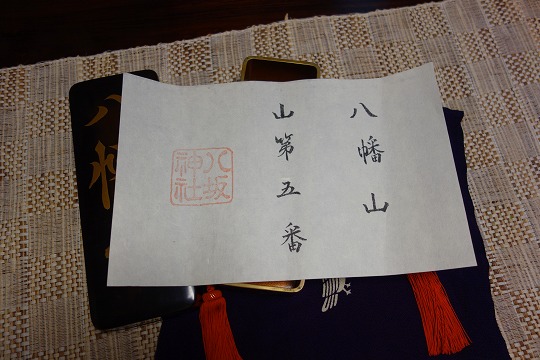 八幡山
山第五番
八坂
神社
八幡